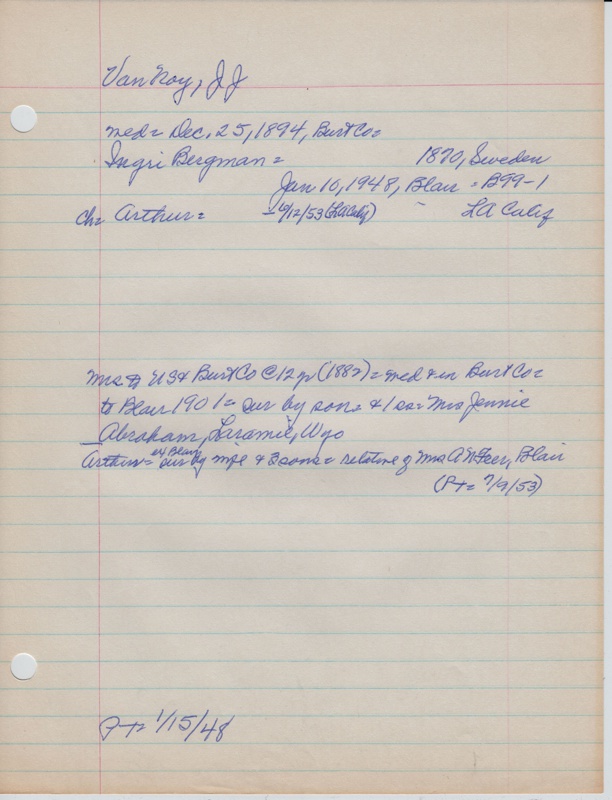 Van Noy, JJ
med= Dec, 25, 1894, Burt Co=
Ingri Bergman= 1870, Sweden
Jan 10, 1948, Blair = B99-1
ch= Arthur= -6/12/53 (LA Calif) - LA Calif
mrs to US & Burt Co @ 12 yr (1882) = med & in Burt Co=
to Blair 1901 = sur by son= & 1 ss= Mrs Jennie
Abraham, Laramie, Wyo
Arthur= ex Blair sur by wife & 3 sons = relative of Mrs A N Feer, Blair
(P-T= 7/9/53)
P-T= 1/15/48